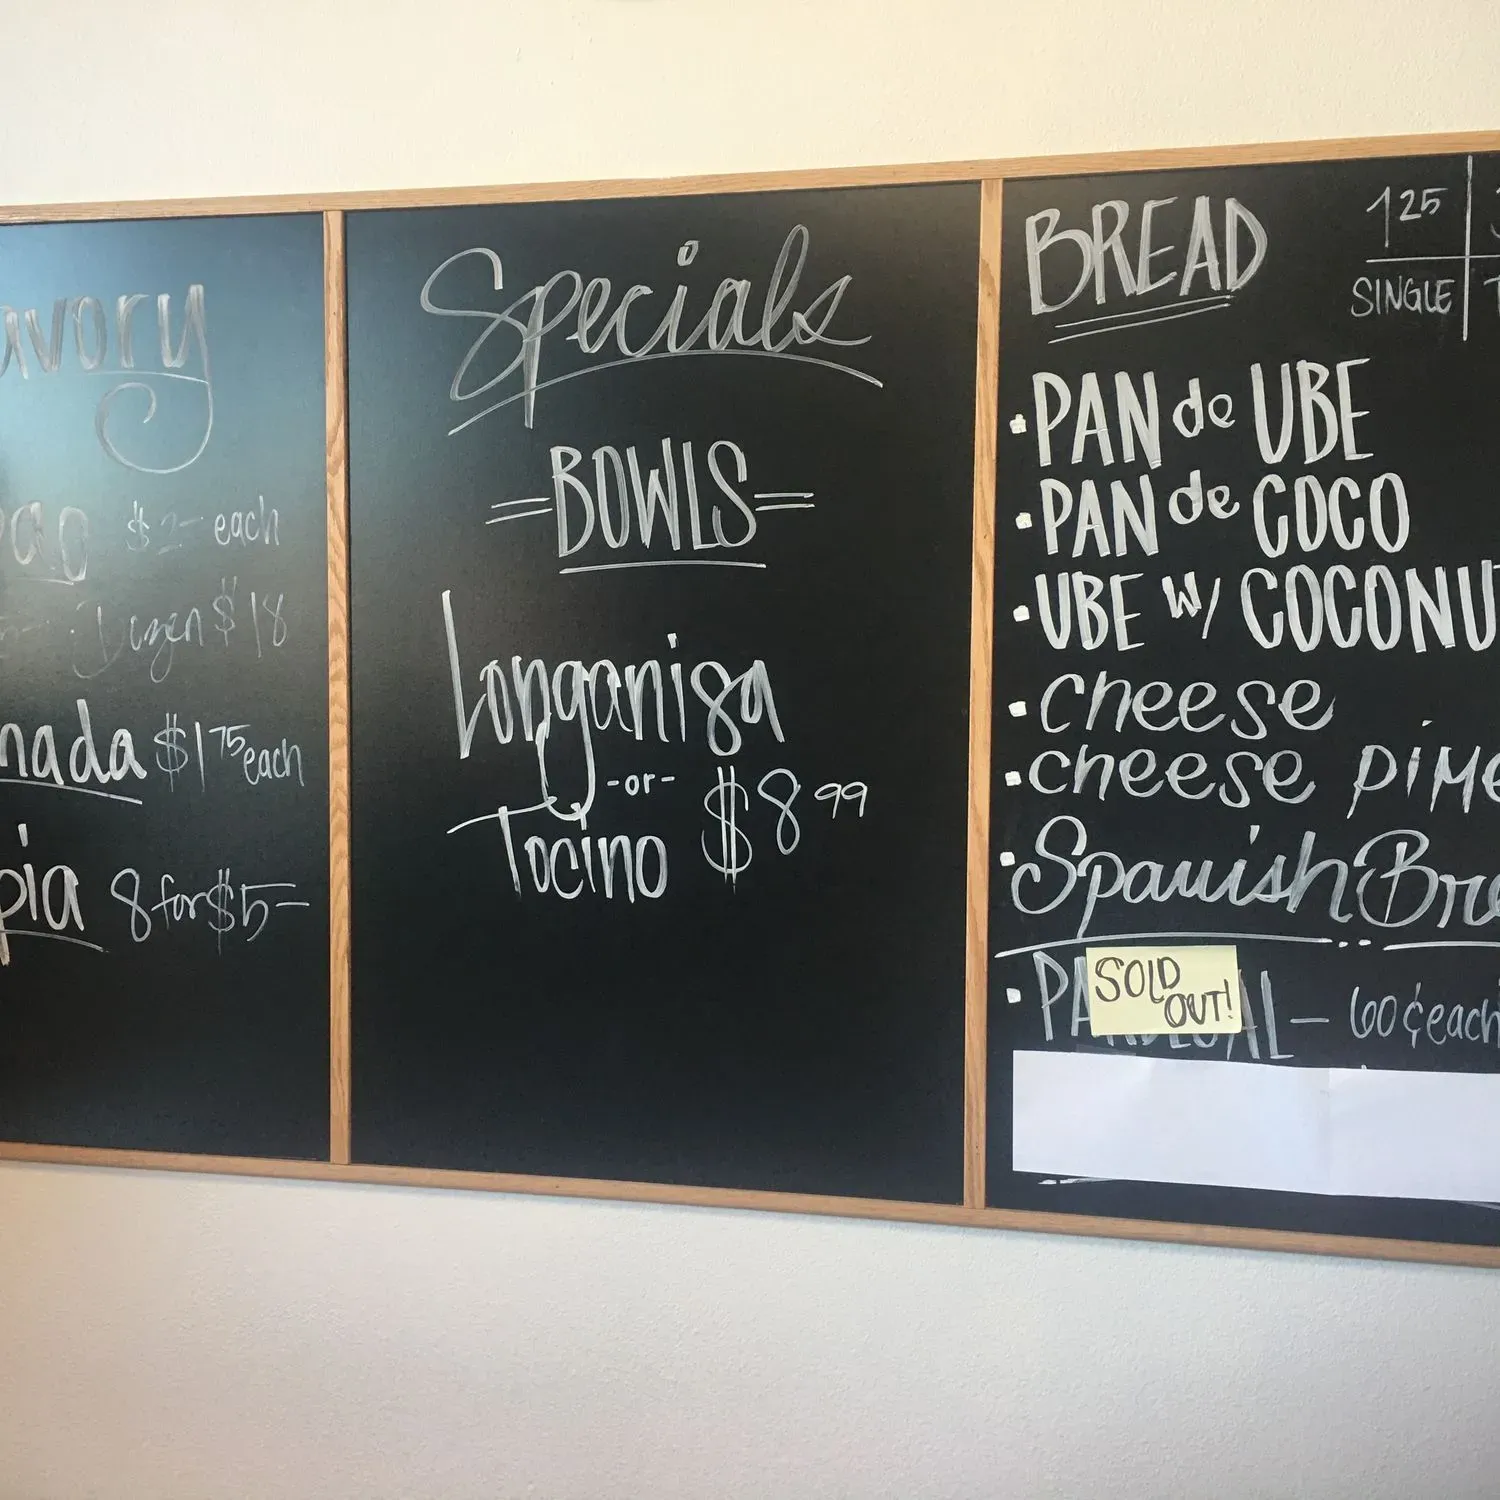 avory
ao $2- each
Dozen $18
nada $1 75 each
pia 8 for $5-
Specials
=BOWLS=
Longanisa
-or-
Tocino $8 99
BREAD
1 25
SINGLE
· PAN de UBE
· PAN de COCO
· UBE w/ COCONU
· cheese
· cheese PiMe
· Spanish Bre
· PANDESAL - 60¢ each
SOLD
OUT!